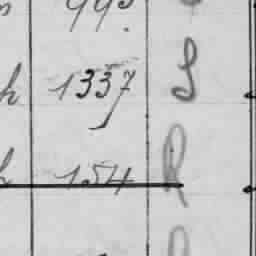 h 1337 S
h 154 R